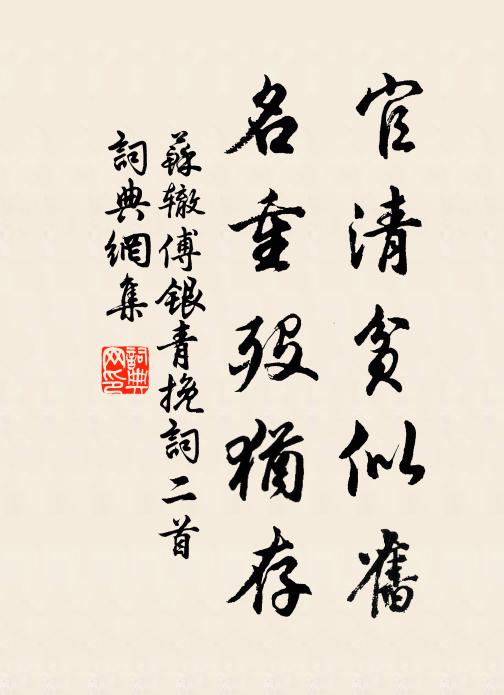 官清貧似舊
名重歿猶存
蘇辙傅银青挽詞二首
詞典網集
詞典网印